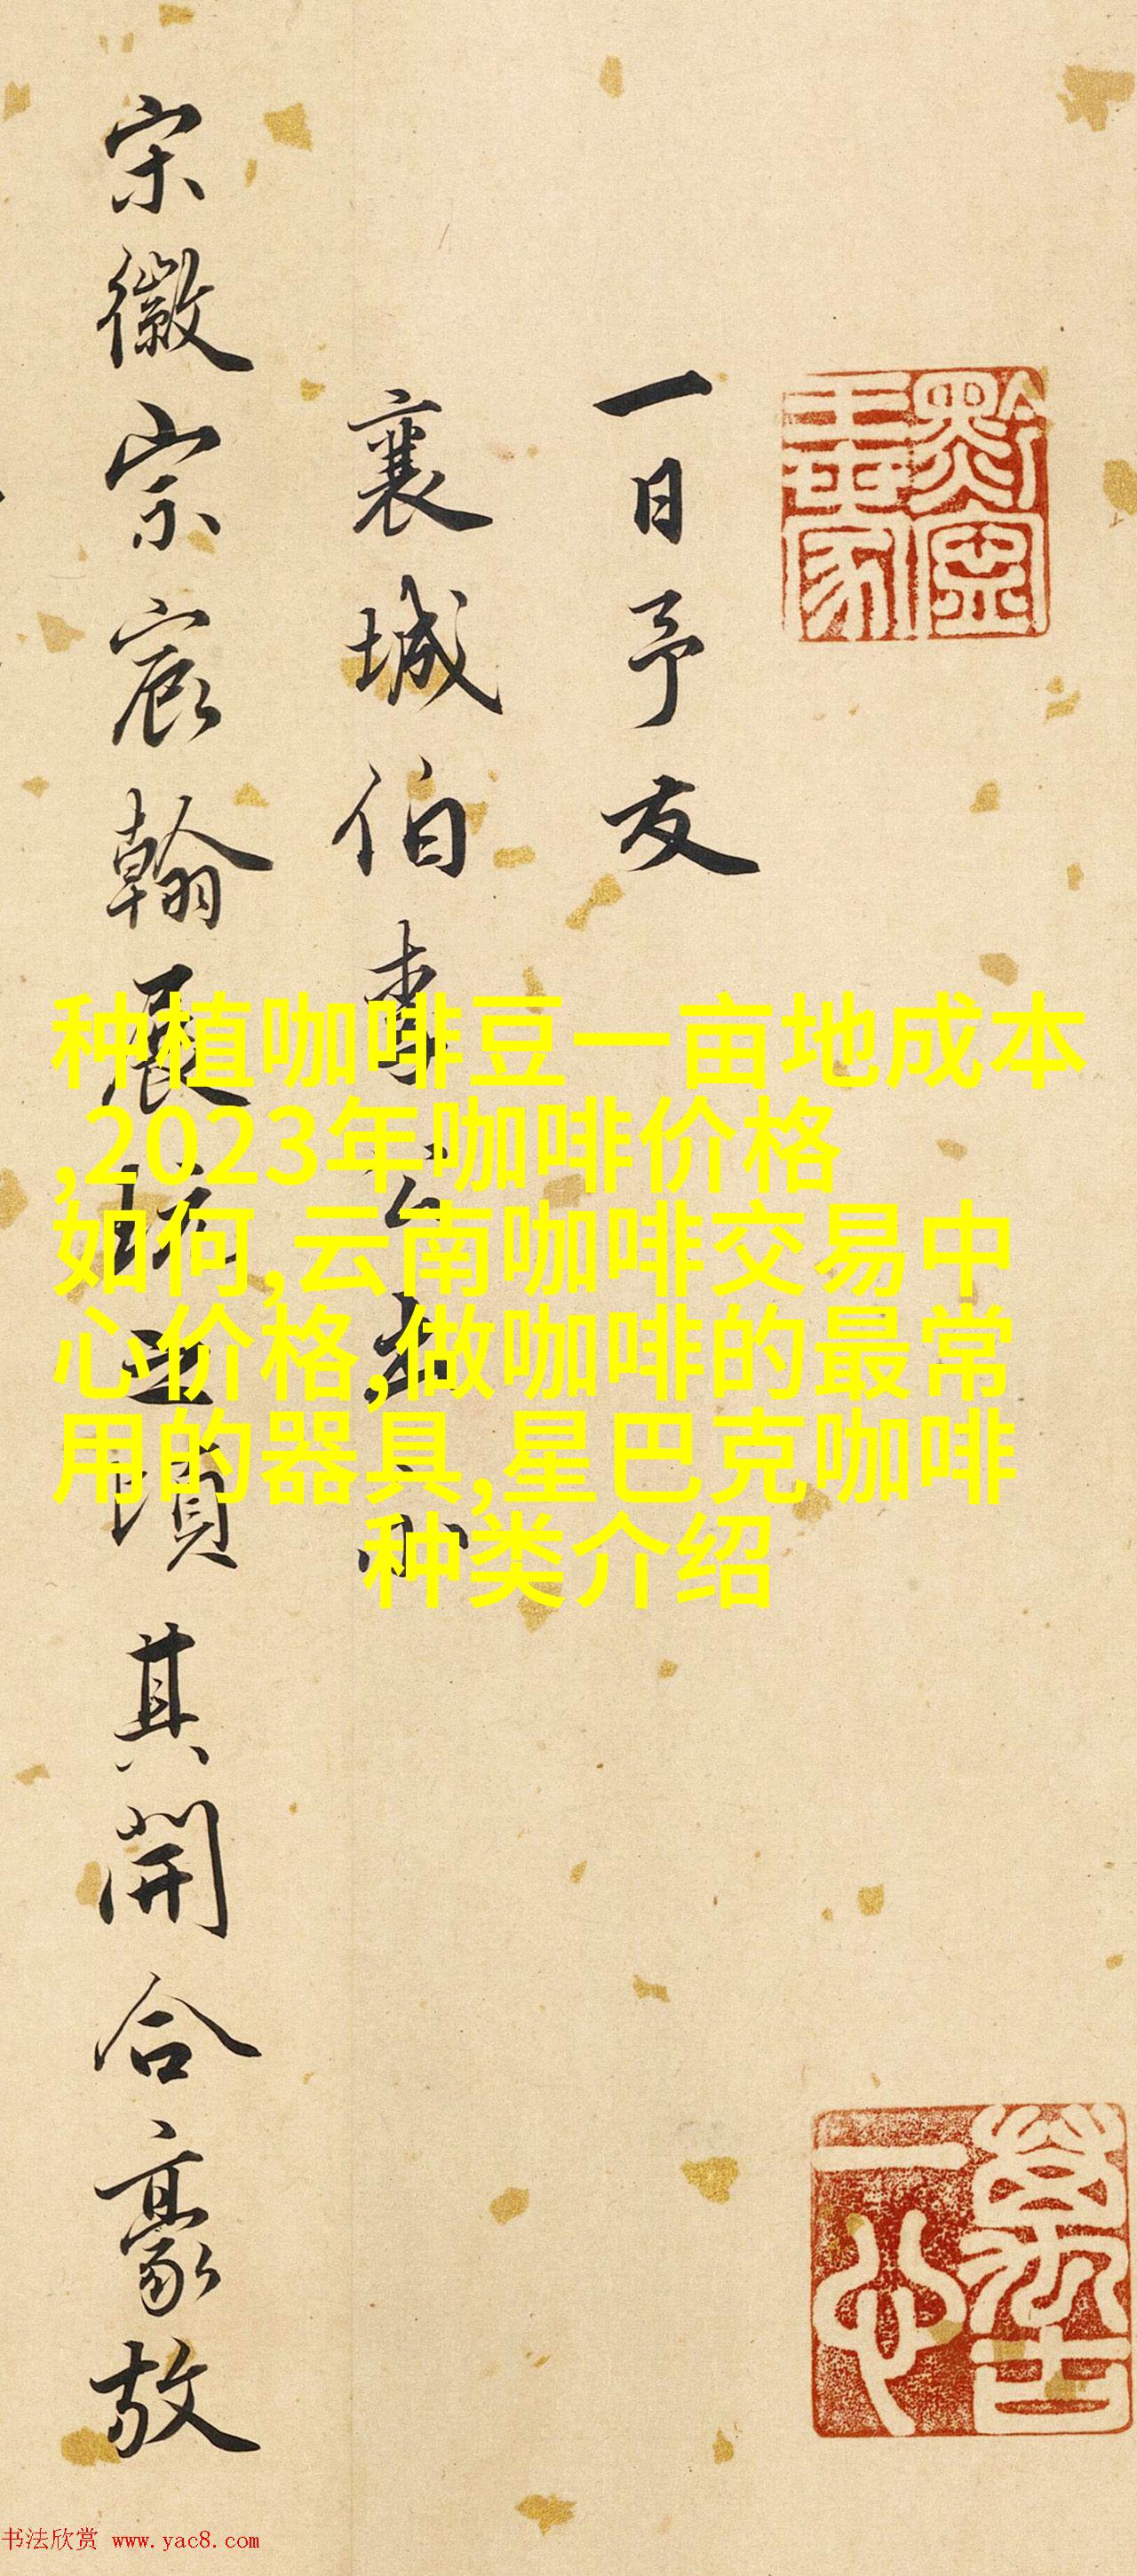 一日予友
襄城伯李公出所
宋徽宗宸翰展玩之頃其開合豪放
种植咖啡豆一亩地成本
,2023年咖啡价格
如何,云南咖啡交易中
心价格,做咖啡的最常
用的器具,星巴克咖啡
种类介绍
书法欣赏 www.yac8.com